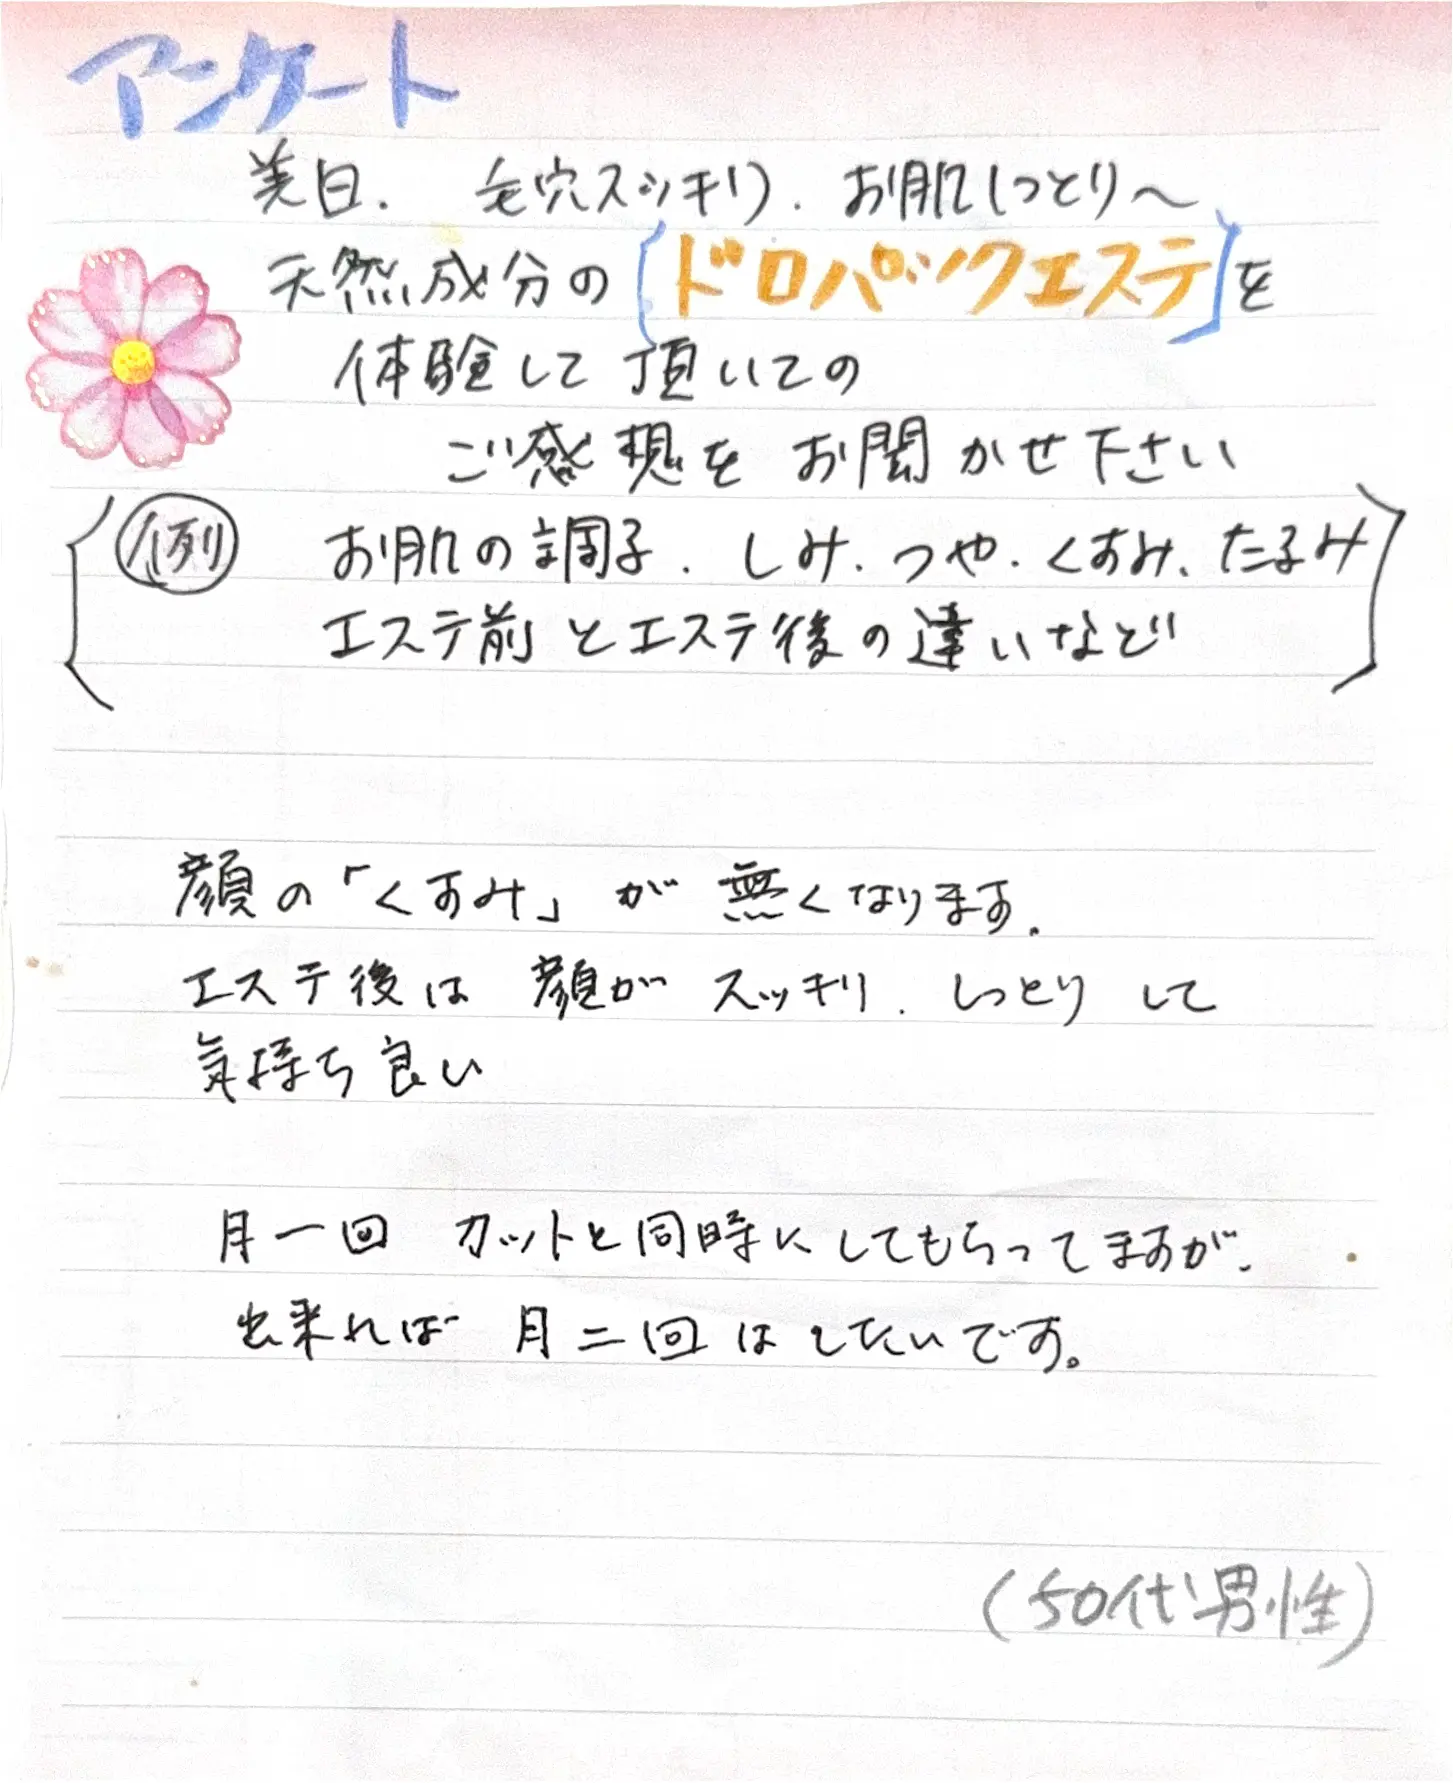 アンケート
美白. 毛穴スッキリ. お肌しっとり〜
天然成分の[ドロパックエステ]を
体験して頂いての
ご感想をお聞かせ下さい
例 お肌の調子. しみ. つや. くすみ、たるみ
エステ前とエステ後の違いなど
顔の「くすみ」が無くなります.
エステ後は 顔が スッキリ. しっとり して
気持ち良い
月一回 カットと同時にしてもらってますが.
出来れば 月二回はしたいです。
(50代男性)